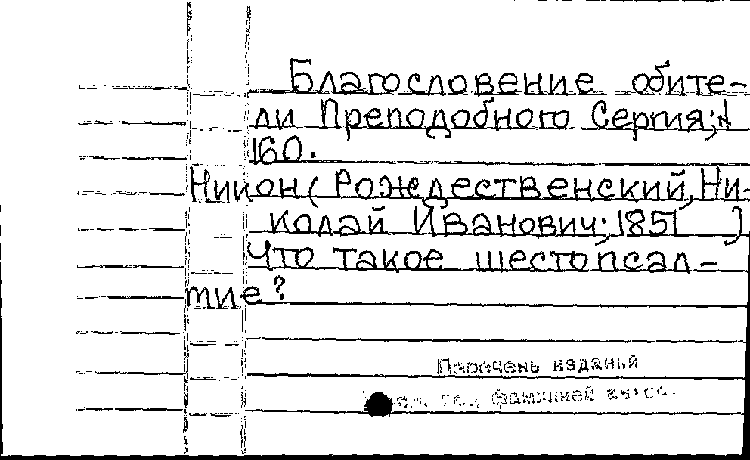 Благословение обите-
ли Преподобного Сергия;
160.
Никон (Рождественский, Ни-
колай Иванович; 1851 )
Что такое шестопсал-
тие?
Перечень изданий
под фамилией